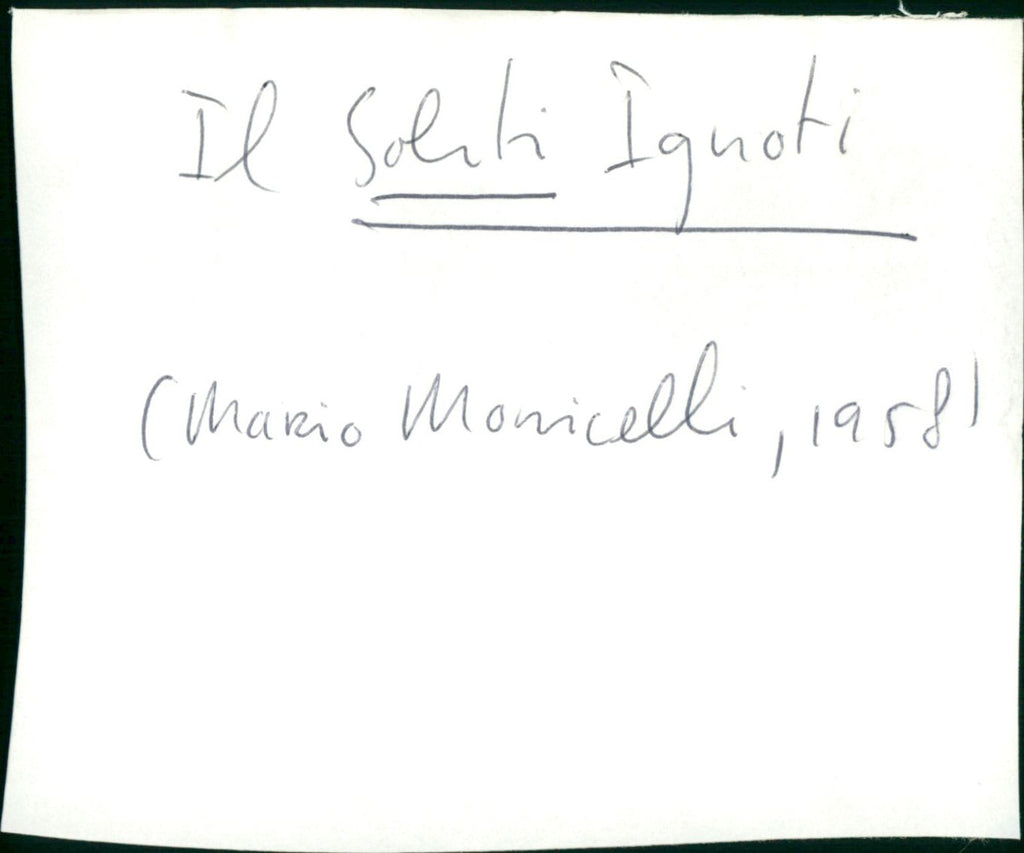 Il Soliti Ignoti
(Mario Monicelli, 1958)